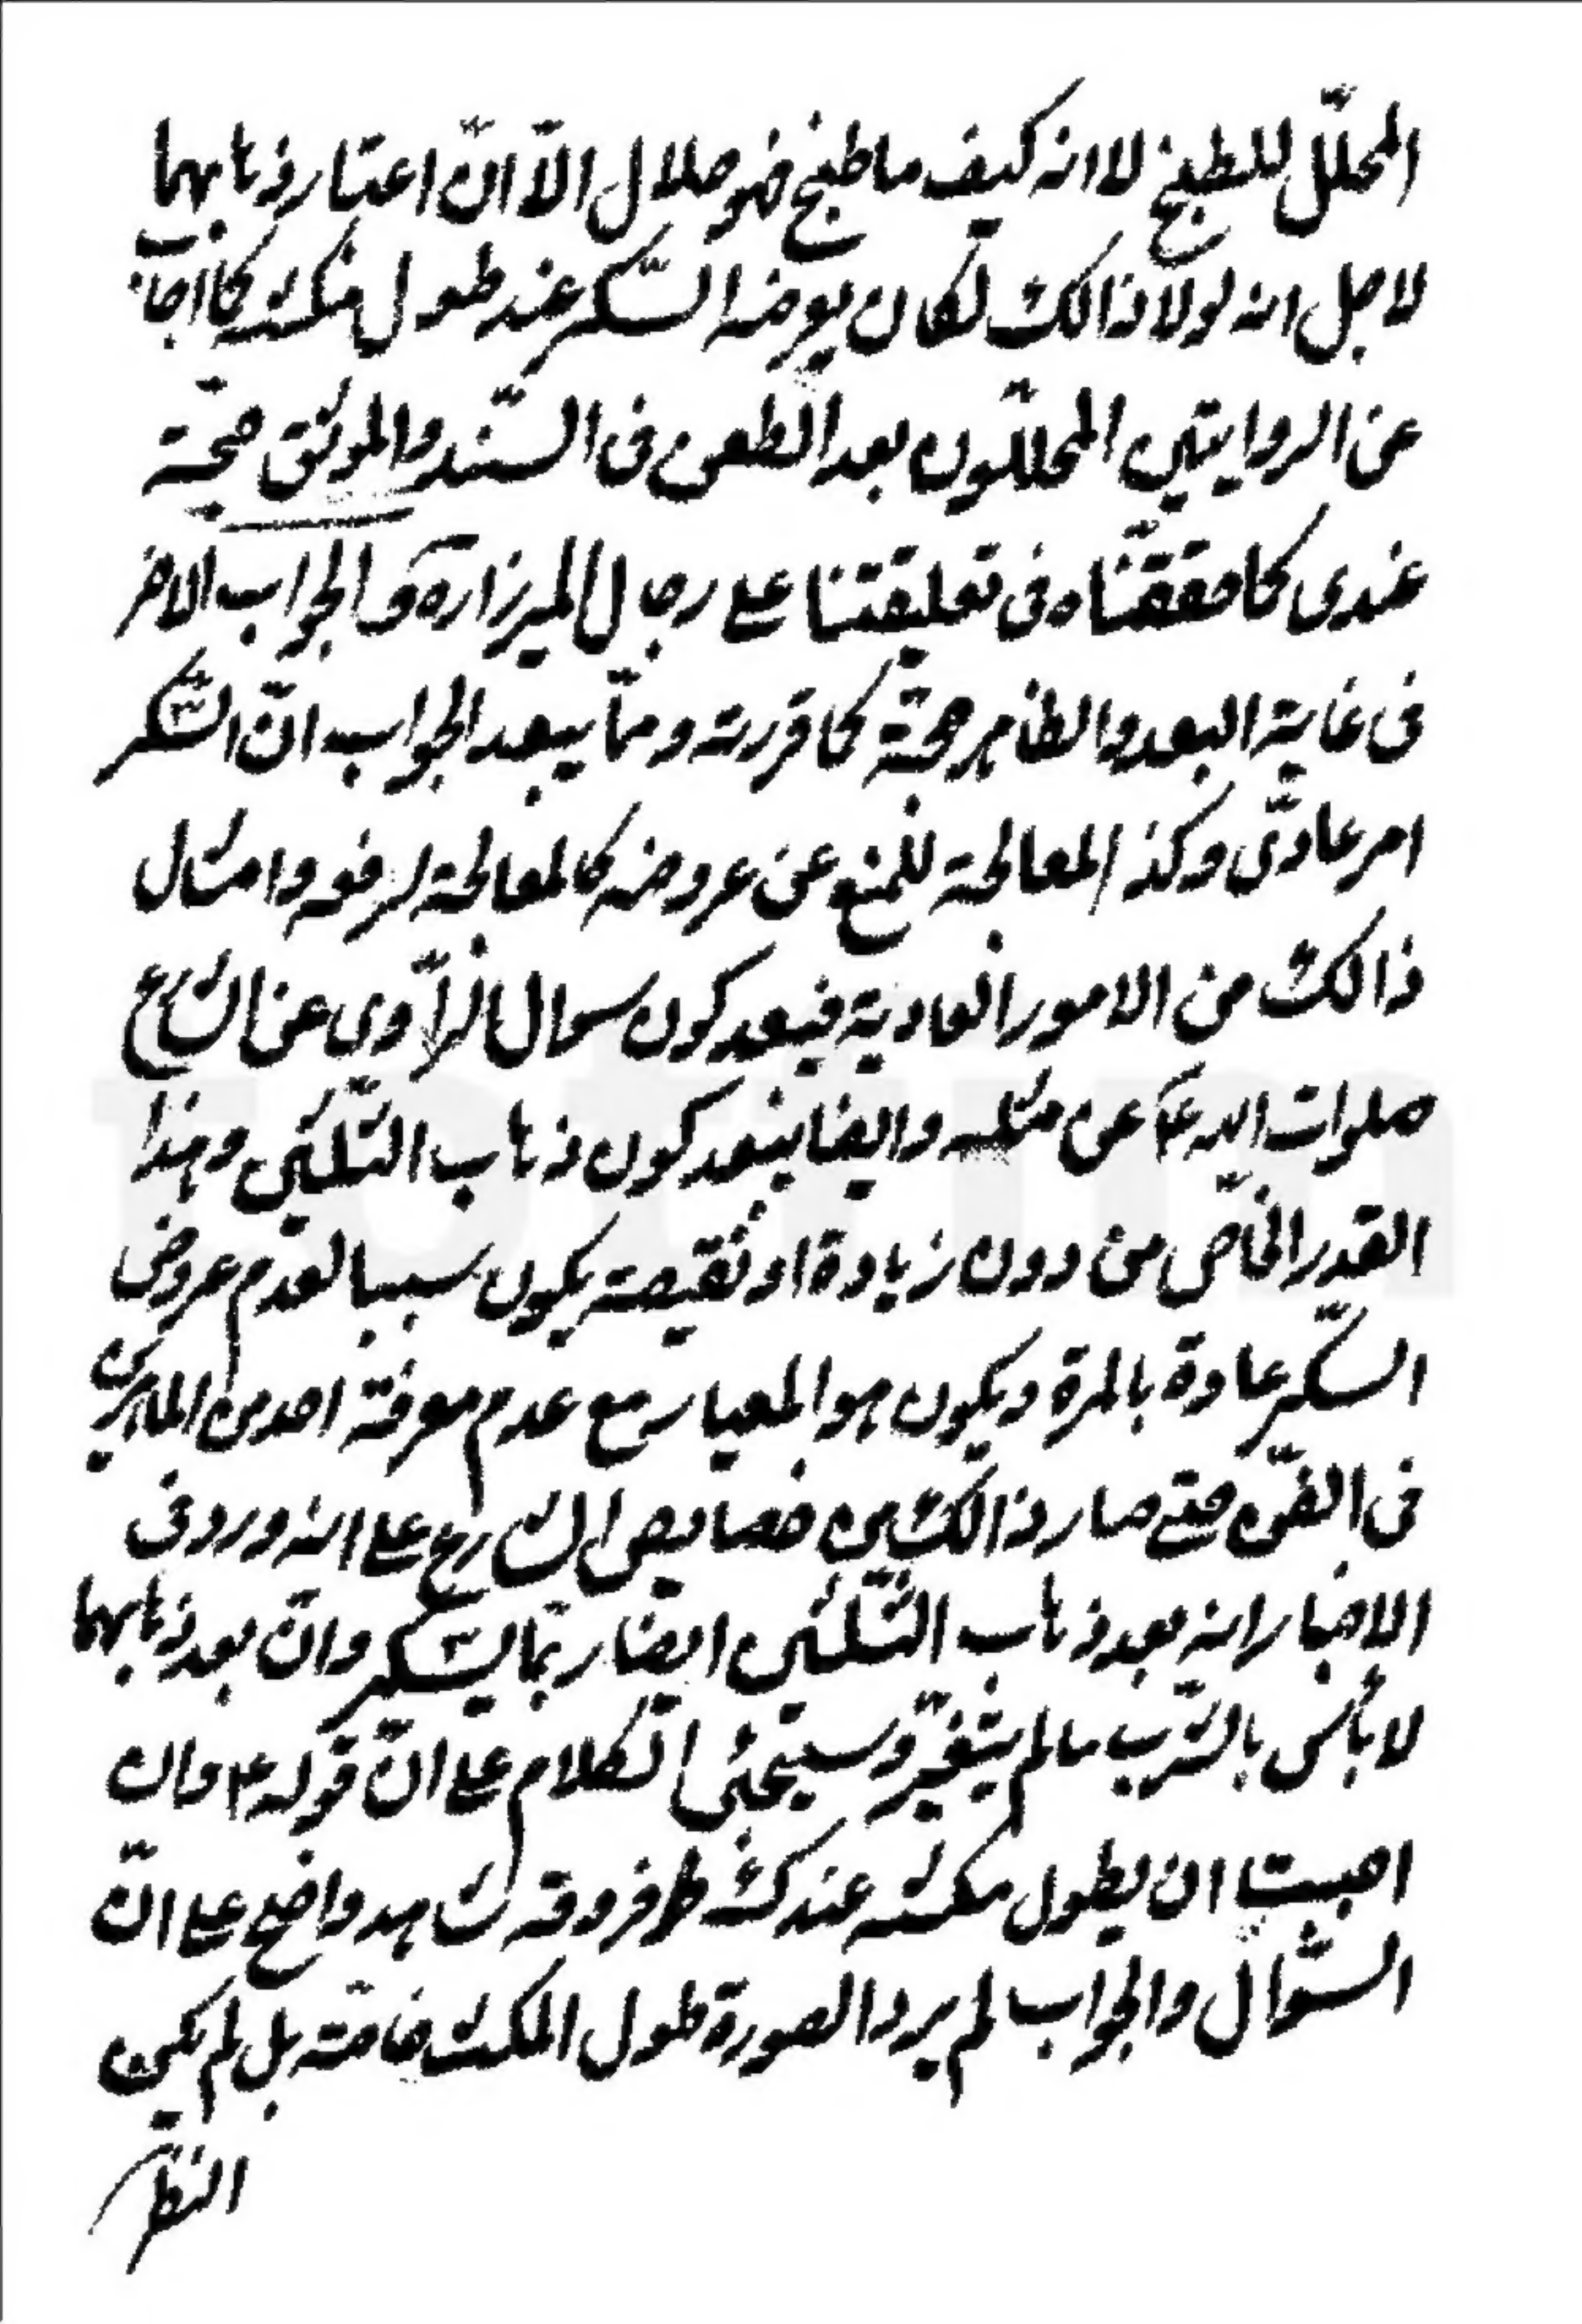 المحلّل للطبخ لا انه كيف ما طبخ فهو حلال الّا انّ اعتبار ذهابهما
لاجل انه لولا ذالك لكان يعرضه السّكر عند طول مكثه كما اجاب
عن الروايتين المحلّلون بعد الطعن فى السّند والموثق حجّة
عندى كما حققناه فى تعليقتنا على رجال الميرزا ره والجواب الاخر
فى غاية البعد والظاهر حجّة كما قررته وممّا يبعد الجواب انّ السّكر
امر عادّى وكذ المعالجة للمنع عن عروضه كالمعالجة لرفعه وامثال
ذالك من الامور العادية فيبعد كون سؤال الرّاوى عن الشارع
صلوات الله ع عن مثله وايضا يبعد كون ذهاب الثّلثين وهذا
القدر الخاصّ من دون زيادة او نقيصة يكون سببا لعدم عروض
السّكر عادة بالمرة ويكون هو المعيار مع عدم معرفة احد من الماهرين
فى الفنّ حتى صار ذالك من خصايص الشارع على انه ورد فى
الاخبار انه بعد ذهاب الثّلثين ايضا ربّما يسّكر وانّ بعد ذهابهما
لا بأس بالشّرب ما لم يتغيّر وسيجئ الكلام على انّ قوله ع وان
احببت ان يطول مكثه عندك فروقه شاهد واضح على انّ
السّؤال والجواب لم يردا لصورة طول المكث خاصّة بل لم يكن
النظر